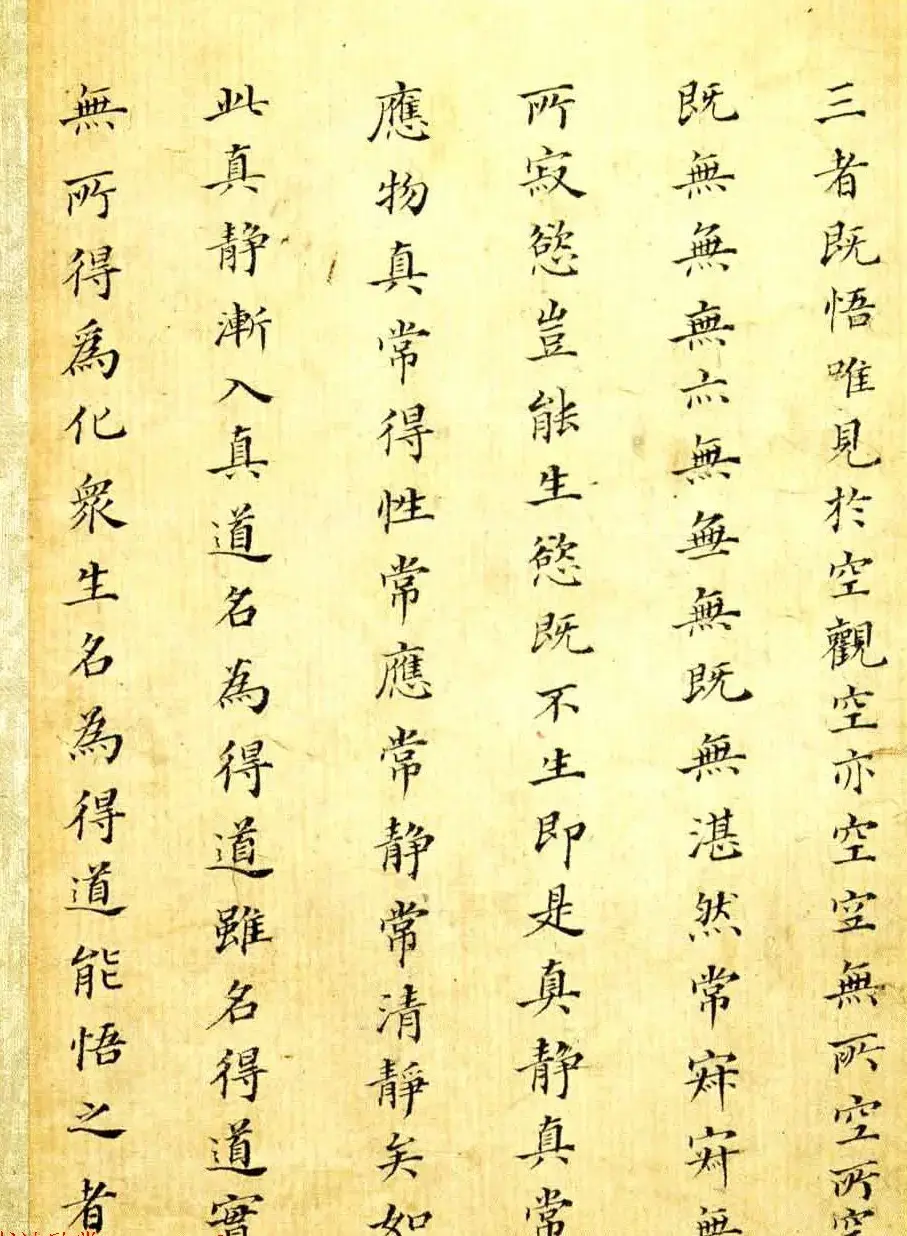 三者既悟唯見於空觀空亦空空無所空所空
既無無無亦無無無既無湛然常寂寂無
所寂慾豈能生慾既不生即是真靜真常
應物真常得性常應常静常清靜矣如
此真静漸入真道名為得道雖名得道實
無所得為化衆生名為得道能悟之者